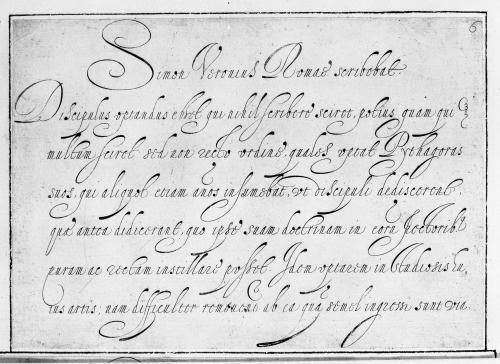 6
Simon Veronius Romae scribebat.
Discipulus optandus esset qui nihil scribere sciret, potius quam qui
multum sciret sed non recto ordine, quales optat Pythagoras
suos, qui aliquot etiam años insumebat, vt discipuli dediscerent,
quæ antea didicerant, quo ipse suam doctrinam in eorũ pectoribꝰ
puram ac rectam instillare posset. Idem optarem in studiosis hu
ius artis; nam difficulter remouent̃ ab ea quã semel ingressi sunt via.